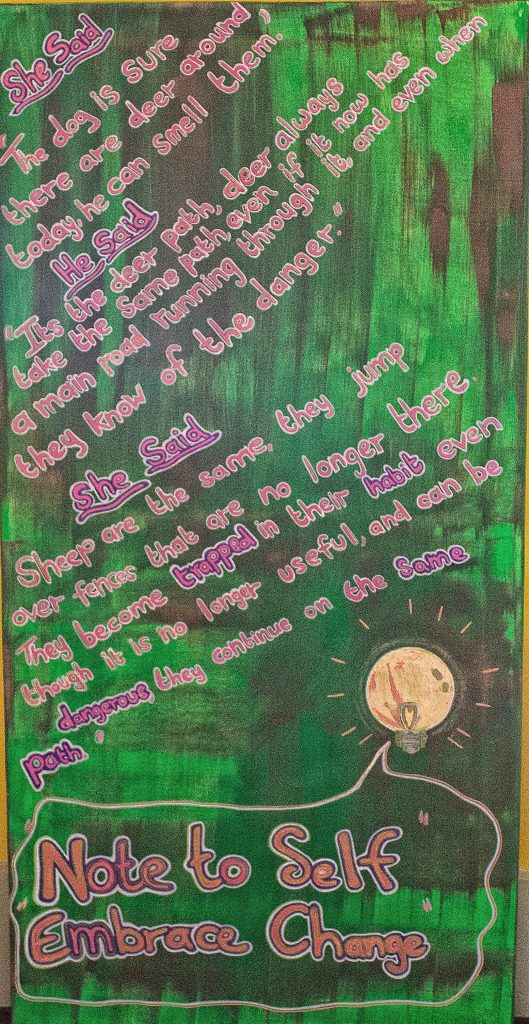 She Said
"The dog is sure
there are deer around
today, he can smell them."
He Said
"Its the deer path, deer always
take the same path, even if it now has
a main road running through it, and even when
they know of the danger."
She Said
Sheep are the same, they jump
over fences that are no longer there.
They become trapped in their habit even
though it is no longer useful, and can be
dangerous, they continue on the same
path "
"Note to Self
Embrace Change"